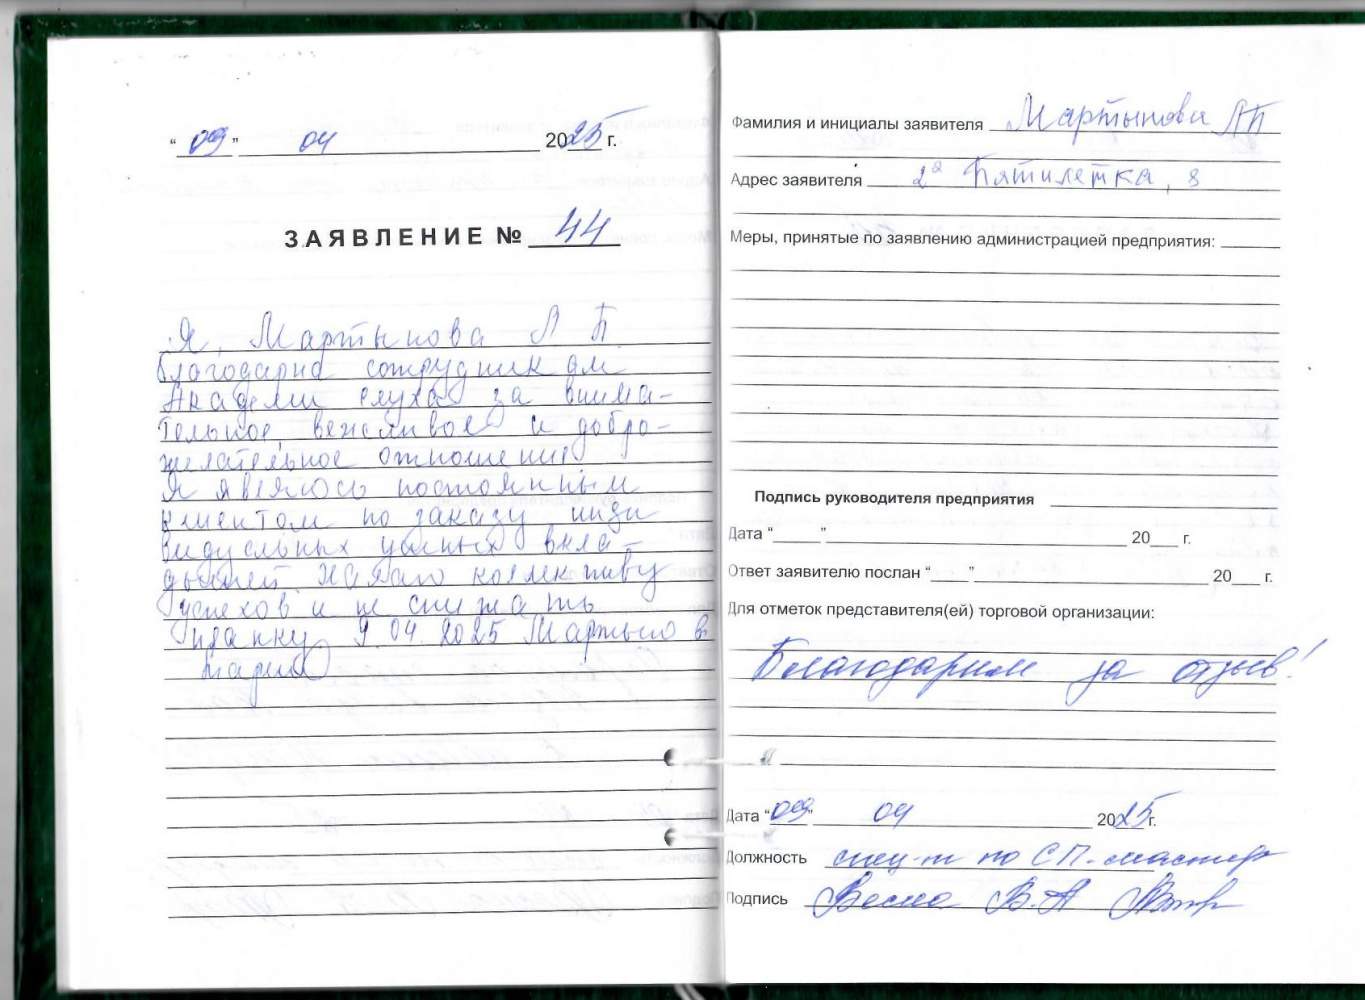 “09” 04 2025 г.
ЗАЯВЛЕНИЕ № 44
Я, Мартынова Л Б
благодарна сотрудникам
Академии слуха за внима-
тельное, вежливое и добро-
желательное отношение
Я являюсь постоянным
клиентом по заказу инди
видуальных ушных вкла-
дышей. Желаю коллективу
успехов и не снижать
планку 9.04.2025 Мартынова
Фамилия и инициалы заявителя Мартынова ЛБ
Адрес заявителя 2ая Пятилетка, 8
Меры, принятые по заявлению администрацией предприятия:
Подпись руководителя предприятия
Дата “ ” 20 г.
Ответ заявителю послан “ ” 20 г.
Для отметок представителя(ей) торговой организации:
Благодарим за отзыв!
Дата “09” 04 2025 г.
Должность спец-т по СП-мастер
Подпись Весна В.А